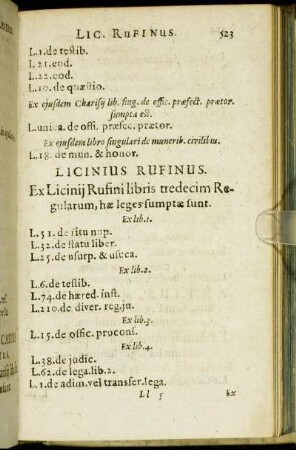 LIC. RUFINUS. 523
L.1.de testib.
L.21.eod.
L.22.eod.
L.10.de quæstio.
Ex ejusdem Charisij lib. sing. de offic. præfect. prætor.
sumpta est.
L.unica.de offi. præfec. prætor.
Ex ejusdem libro singulari de munerib. civilibus.
L.18.de mun. & honor.
LICINIUS RUFINUS.
Ex Licinij Rufini libris tredecim Re-
gularum, hæ leges sumptæ sunt.
Ex lib.1.
L.51.de ritu nup.
L.32.de statu liber.
L.25.de usurp. & usuca.
Ex lib.2.
L.6.de testib.
L.74.de hæred. inst.
L.210.de diver. reg.ju.
Ex lib.3.
L.15.de offic. procons.
Ex lib.4.
L.38.de judic.
L.62.de lega.lib.2.
L.1.de adim.vel transfer.lega.
Ll 5 Ex